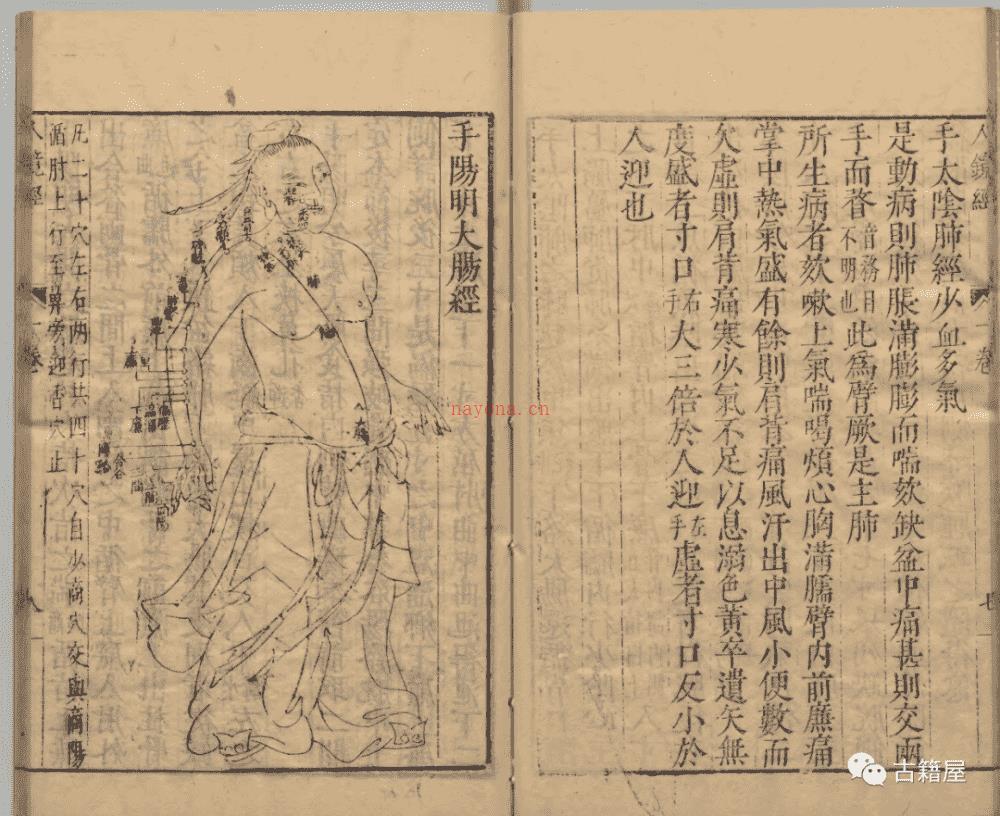 人鏡經
一卷
七
手太陰肺經少血多氣
是動病則肺脹滿膨膨而喘欬缺盆中痛甚則交兩
手而瞀音務目不明也此為臂厥是主肺
所生病者欬嗽上氣喘喝煩心胸滿臑臂內前廉痛
掌中熱氣盛有餘則肩背痛風汗出中風小便數而
欠虛則肩背痛寒少氣不足以息溺色黃卒遺矢無
度盛者寸口右手大三倍於人迎左手虛者寸口反小於
人迎也
手陽明大腸經
迎香
肩井
曲池
下廉
合谷
肺
大腸
凡二十穴左右兩行共四十穴自少商穴交與商陽
循肘上行至鼻旁迎香穴止
人鏡經
一卷
八
nayona.cn
古籍屋